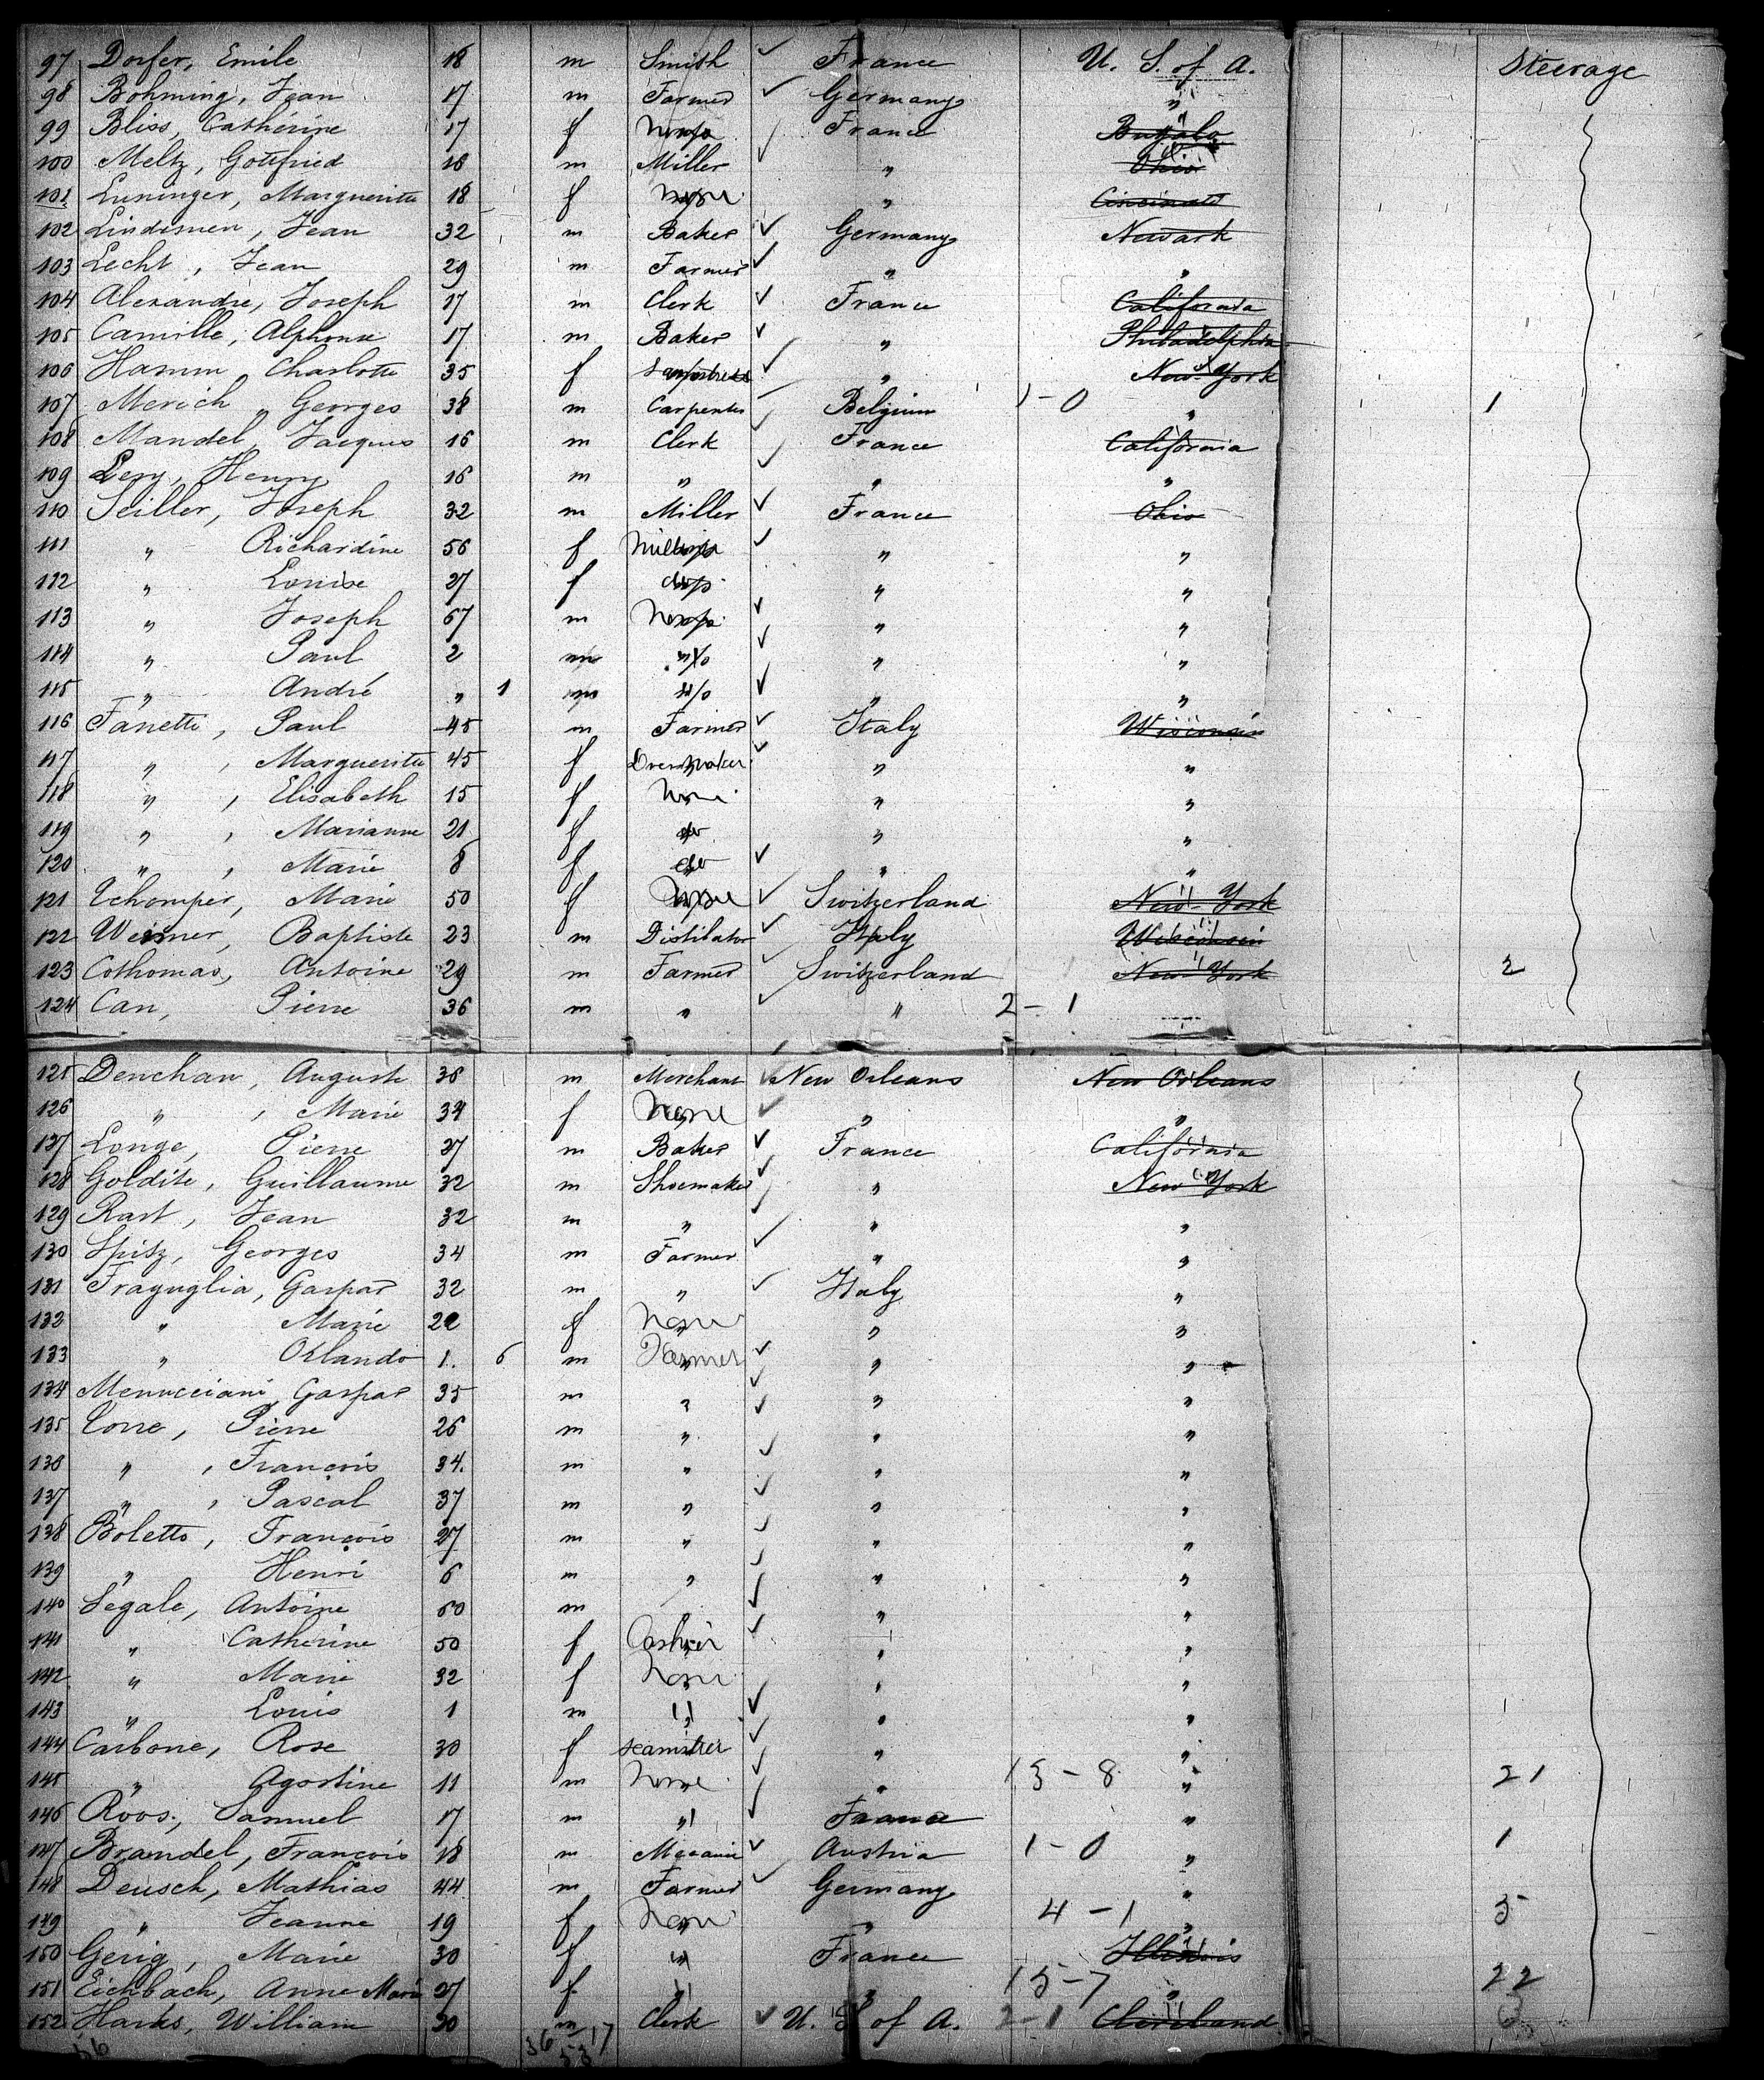 97 Dorfer, Emile 18 m Smith ✓ France U. S. of A. Steerage
98 Bohming, Jean 17 m Farmer ✓ Germany "
99 Bliss, Catherine 17 f None ✓ France
100 Meltz, Gottfried 16 m Miller ✓ " Ohio
101 Luninger, Margueritte 18 f None " Cincinati
102 Lindismen, Jean 32 m Baker ✓ Germany Newark
103 Lecht, Jean 29 m Farmer ✓ " "
104 Alexandre, Joseph 17 m Clerk ✓ France California
105 Camille, Alphonse 17 m Baker ✓ " Philadelphia
106 Hamm Charlotte 35 f ✓ " New-York
107 Merich, Georges 38 m Carpenter ✓ Belgium 1-0 " 1
108 Mandel, Jacques 16 m Clerk ✓ France California
109 Levy, Henry 16 m " ✓ " "
110 Seiller, Joseph 32 m Miller ✓ France Ohio
111 " Richardine 56 f ✓ " "
112 " Louise 27 f do " "
113 " Joseph 67 m None ✓ " "
114 " Paul 2 m ✓ " "
115 " André " 1 m ✓ " "
116 Fanetti, Paul 45 m Farmer ✓ Italy Wisconsin
117 " , Margueritte 45 f Dressmaker ✓ " "
118 " , Elisabeth 15 f None " "
119 " , Marianne 21 f do " "
120 " , Marie 8 f do ✓ " "
121 Tchomper, Marie 50 f None ✓ Switzerland New-York
122 Weimer, Baptiste 23 m Distilator ✓ Italy Wisconsin
123 Cothomas, Antoine 29 m Farmer ✓ Switzerland New-York 2
124 Can, Pierre 36 m " ✓ " 2-1
125 Denchan, Auguste 36 m Merchant ✓ New Orleans New Orleans
126 " , Marie 34 f None ✓ " "
127 Longe, Pierre 27 m Baker ✓ France California
128 Goldite, Guillaume 32 m Shoemaker ✓ " New York
129 Rast, Jean 32 m " ✓ " "
130 Spitz, Georges 34 m Farmer ✓ " "
131 Fraguglia, Gaspar 32 m " ✓ Italy "
132 " Marie 22 f None " "
133 " Orlando 1. 6 m Farmer ✓ " "
134 Menucciani, Gaspar 35 m " ✓ " "
135 Corre, Pierre 26 m " ✓ " "
136 " , Francois 34. m " ✓ " "
137 " , Pascal 37 m " ✓ " "
138 Boletto, François 27 m " ✓ " "
139 " Henri 6 m " ✓ " "
140 Segale, Antoine 60 m ✓ " "
141 " Catherine 50 f ✓ " "
142 " Marie 32 f None " "
143 " Louis 1 m " ✓ " "
144 Carbone, Rose 30 f ✓ " "
145 " Agostine 11 m None ✓ " 13-8 " 21
146 Roos, Samuel 17 m " ✓ France "
147 Brandel, Francois 18 m ✓ Austria 1-0 " 1
148 Deusch, Mathias 44 m Farmer ✓ Germany "
149 " Jeanne 19 f None " 4-1 " 5
150 Gerig, Marie 30 f " France Illinois
151 Eichbach, Anne Marie 27 f " " 15-7 " 22
152 Harks, William 30 m Clerk ✓ U. S of A. 2-1 Cleveland 3
56 36 17
53